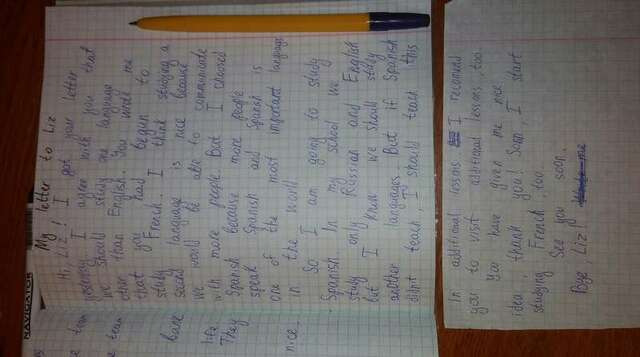 NAVIGATOR
have
life.
They
nice
My letter to Liz
Hi, Liz! I got your letter
recently. I agree with you that
we should study one language
other than English. You wrote me
that you had begun to
study French. I think studying a
second language is nice because
we would be able to communicate
with more people. But I choosed
Spanish because more people
speak Spanish and Spanish is
one of the most important language
in the world.
So I am going to study
Spanish. In my school we
study only Russian and English
but I know we should study
another languages. But if Spanish
didn't teach, I should teach this
in additional lessons. I recomend
you to visit additional lessons, too.
You have given me nice
idea, thank you! Soon, I start
studying French, too.
See you soon.
Bye, Liz!